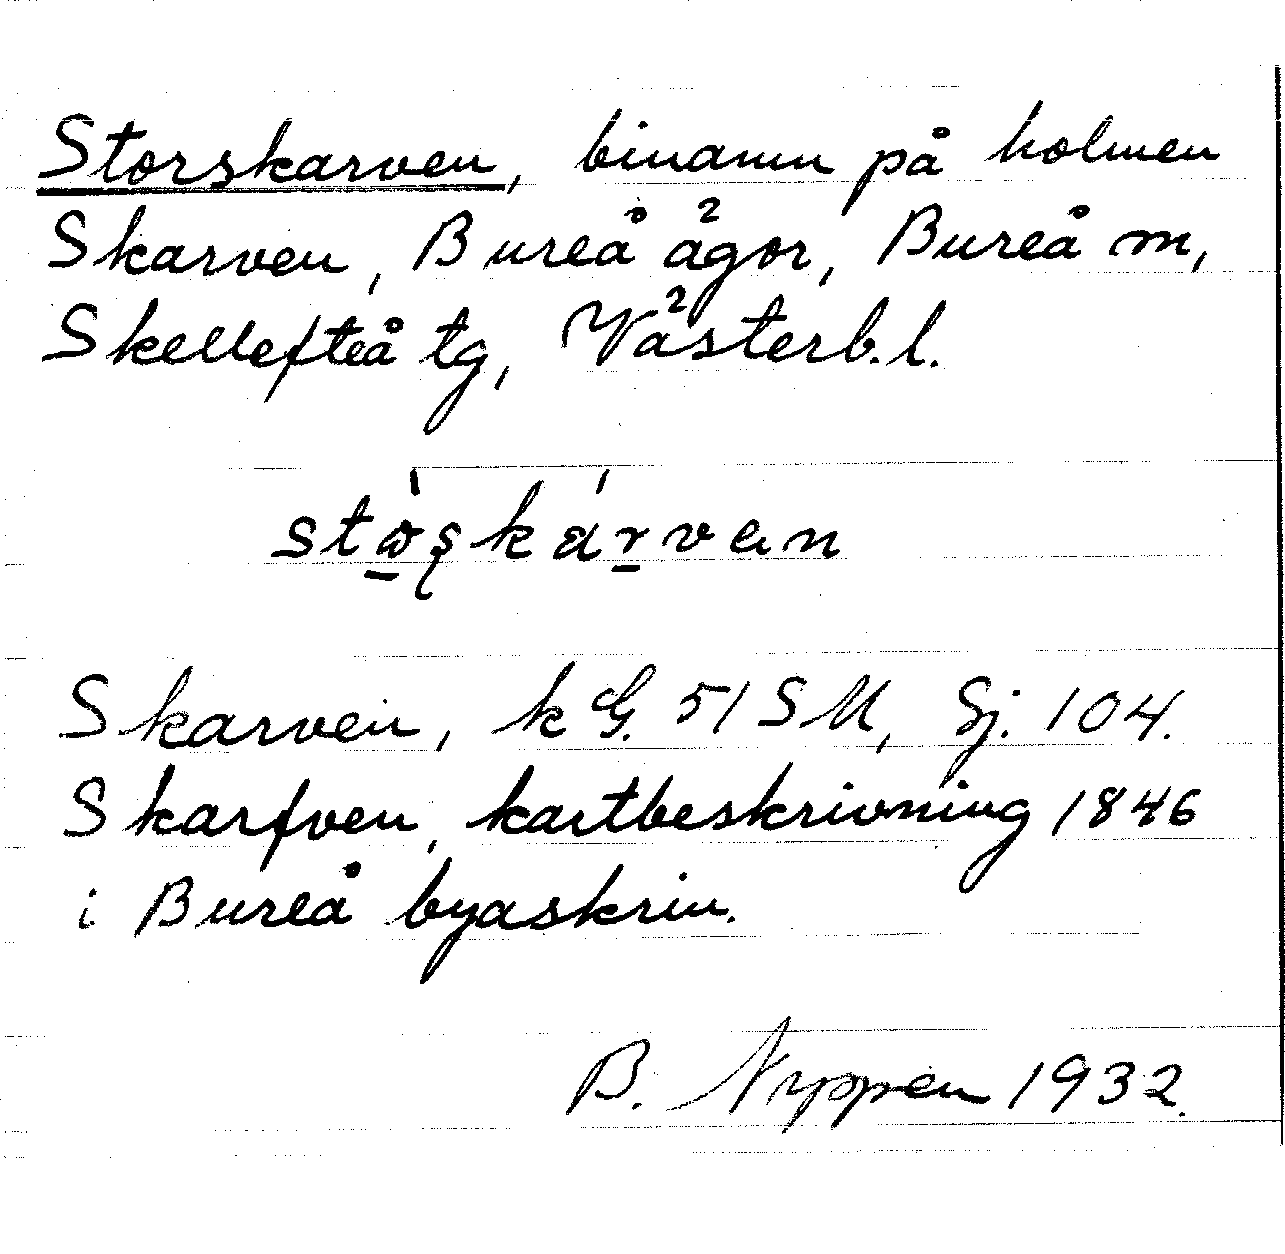 Storskarven, binamn på holmen
Skarven, Bureå ägor, Bureå m,
Skellefteå tg, Västerb.l.
Skarven, k G. 51 SM, Sj. 104.
Skarfven, kartbeskrivning 1846
i Bureå byaskrin.
B. Nyppen 1932.